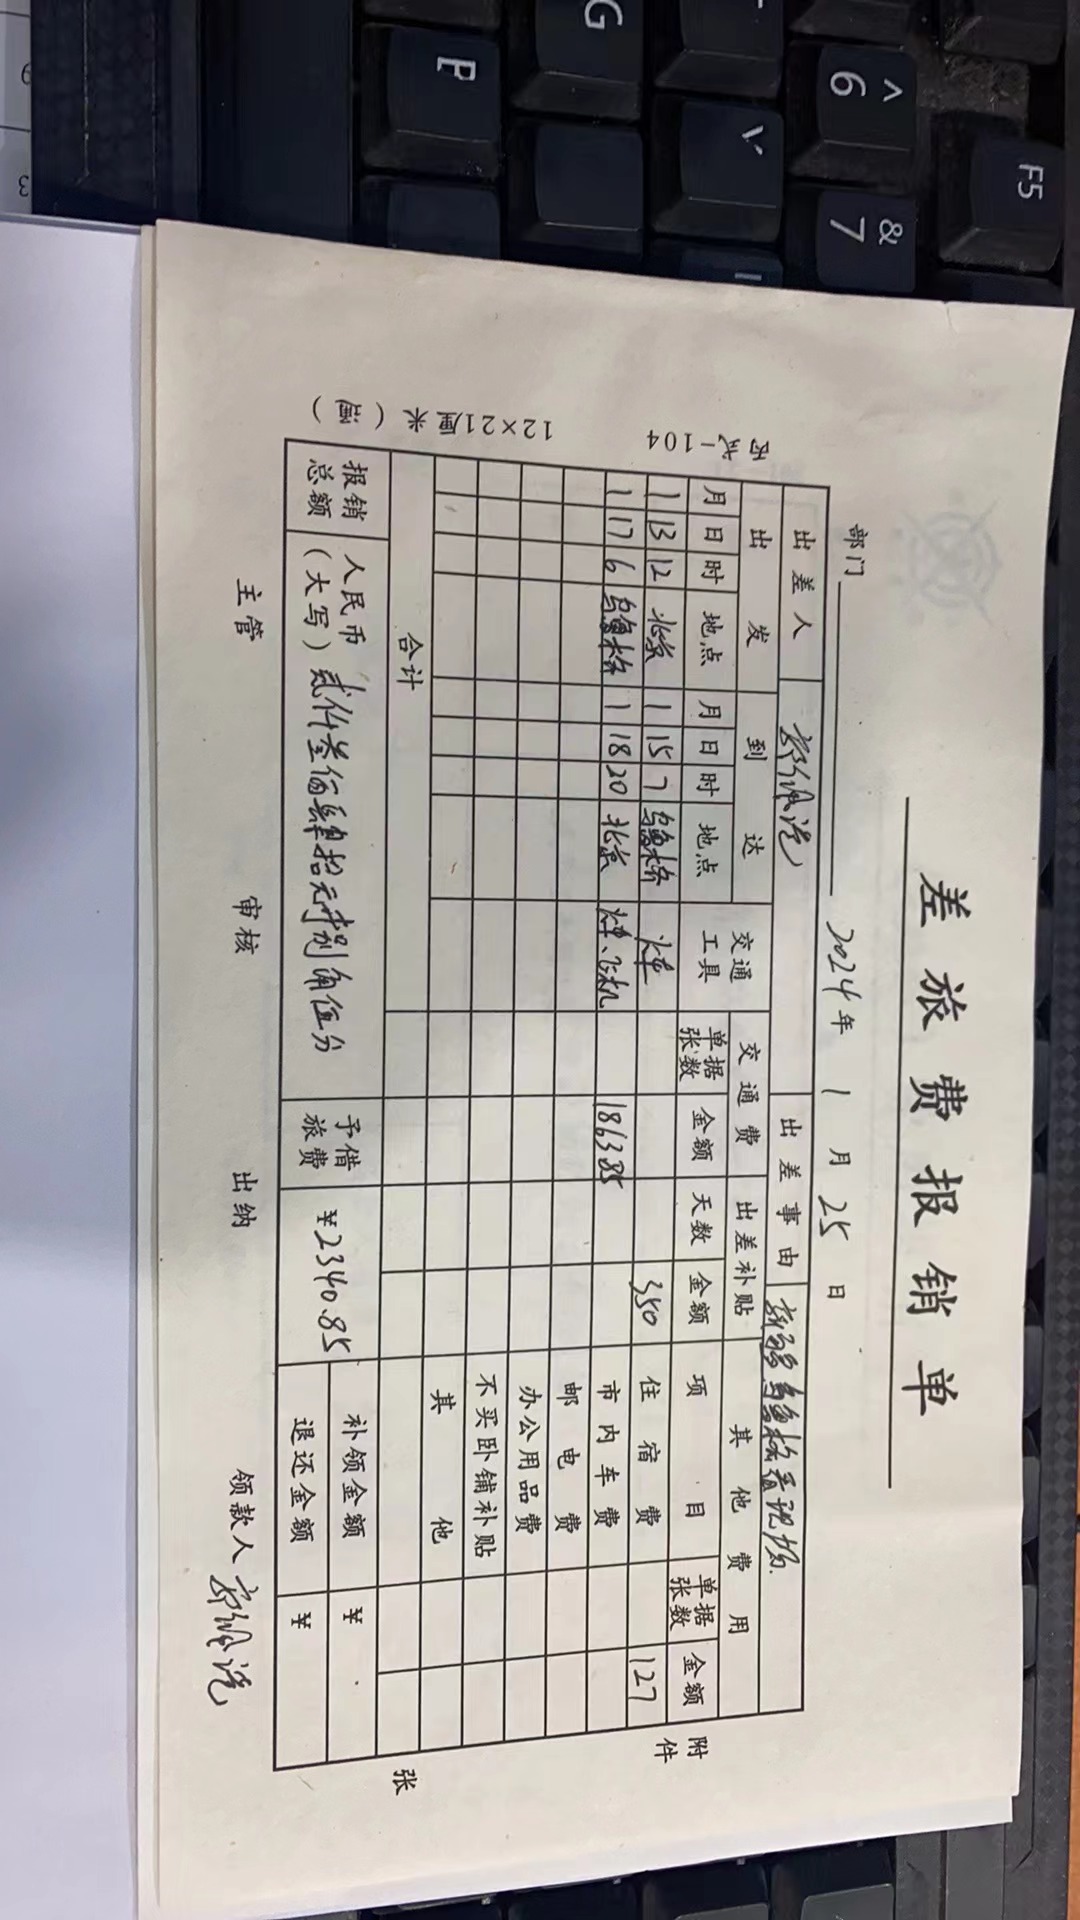 差旅费报销单
部门 2024年1月25日
出差人 出差事由
出发 到达 交通工具 交通费 出差补贴 其他费用
月 日 时 地点 月 日 时 地点 单据张数 金额 天数 金额 项目 单据张数 金额
1 13 12 北京 1 15 7 乌鲁木齐 火车 350 住宿费 127
1 17 6 乌鲁木齐 1 18 20 北京 火车、飞机 1863.85 市内车费
邮电费
办公用品费
不买卧铺补贴
其他
合计
报销总额 人民币(大写) 贰仟叁佰肆拾元捌角伍分 予借旅费 ¥2340.85 补领金额 ¥
退还金额 ¥
主管 审核 出纳 领款人
附件 张
丙式-104 12×21厘米
P
G
V
^
6
&
7
F5